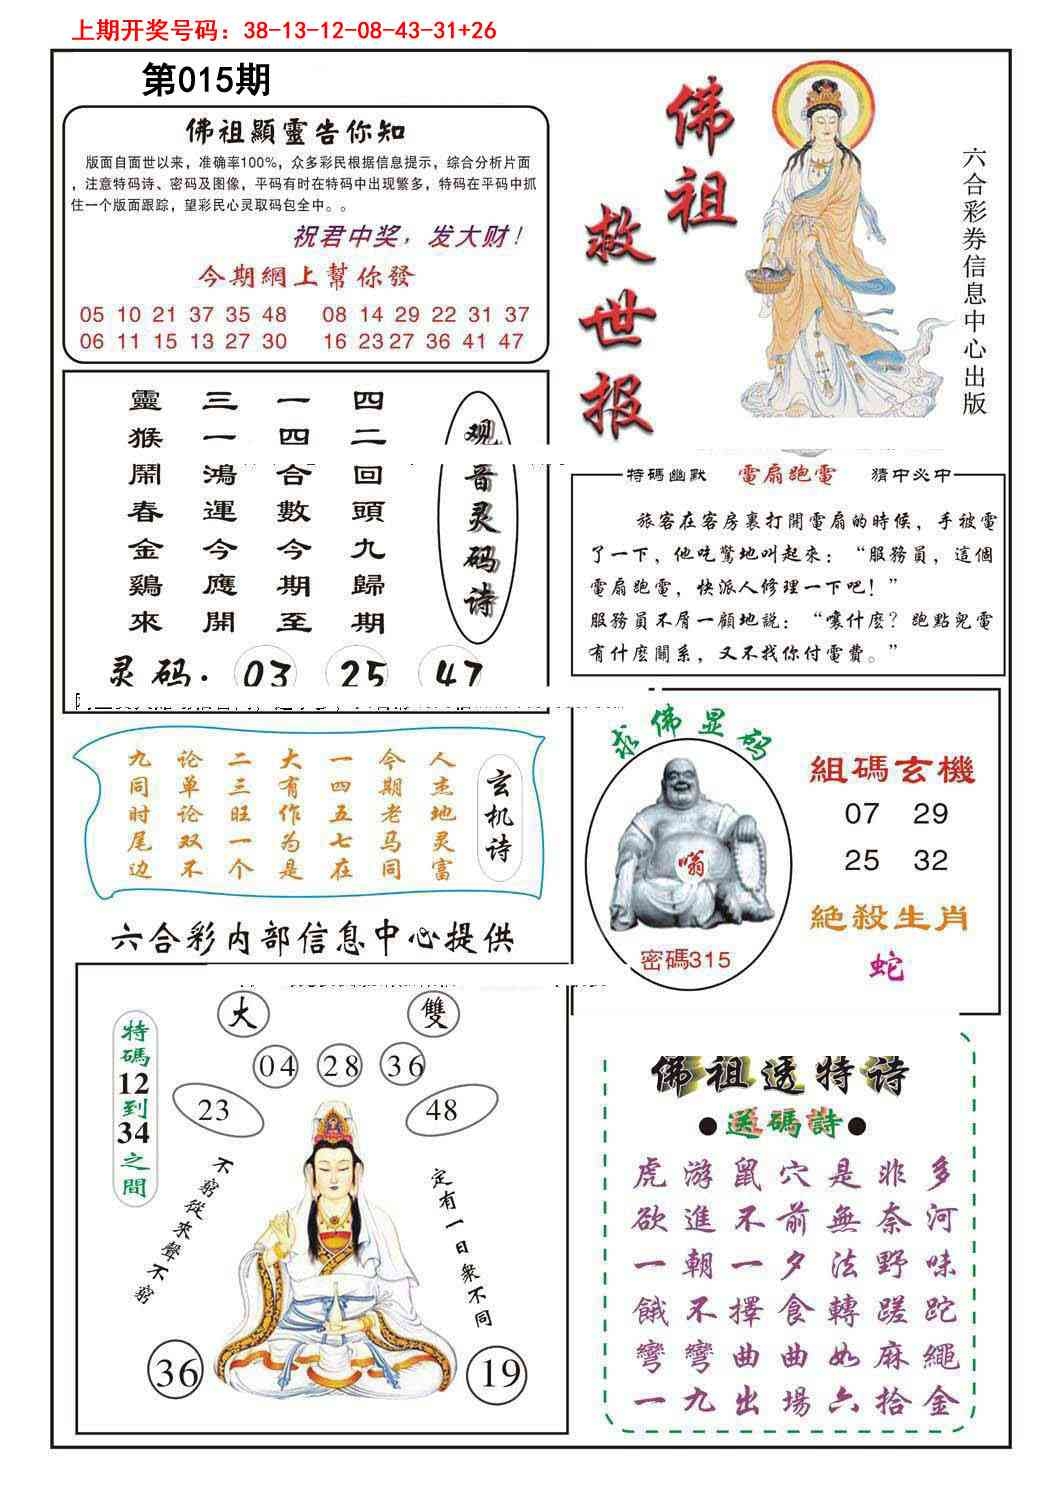 上期开奖号码：38-13-12-08-43-31+26
第015期
佛祖顯靈告你知
版面自面世以来，准确率100%，众多彩民根据信息提示，综合分析片面
，注意特码诗、密码及图像，平码有时在特码中出现繁多，特码在平码中抓
住一个版面跟踪，望彩民心灵取码包全中。。
祝君中奖，发大财！
今期網上幫你發
05 10 21 37 35 48 08 14 29 22 31 37
06 11 15 13 27 30 16 23 27 36 41 47
佛祖
救世报
六合彩券信息中心出版
观音灵码诗
四二回頭九歸期
一四合數今期至
三一鴻運今應開
靈猴鬧春金鷄來
灵码.03 25 47
特碼幽默 電扇跑電 猜中必中
旅客在客房裏打開電扇的時候，手被電
了一下，他吃驚地叫起來：“服務員，這個
電扇跑電，快派人修理一下吧！”
服務員不屑一顧地説：“嚷什麽？跑點兒電
有什麽關系，又不找你付電費。”
玄机诗
人杰地灵富
今期老马同
一四五七在
大有作为是
二三旺一个
论单论双不
九同时尾边
求佛显码
嗡
密碼315
組碼玄機
07 29
25 32
絕殺生肖
蛇
六合彩内部信息中心提供
特碼12到34之間
大 雙
04 28 36
23 48
不窮從來聲不窮
定有一日衆不同
36 19
佛祖透特诗
●送碼詩●
虎游鼠穴是非多
欲進不前無奈河
一朝一夕法野味
餓不擇食轉蹉跎
彎彎曲曲如麻繩
一九出場六拾金